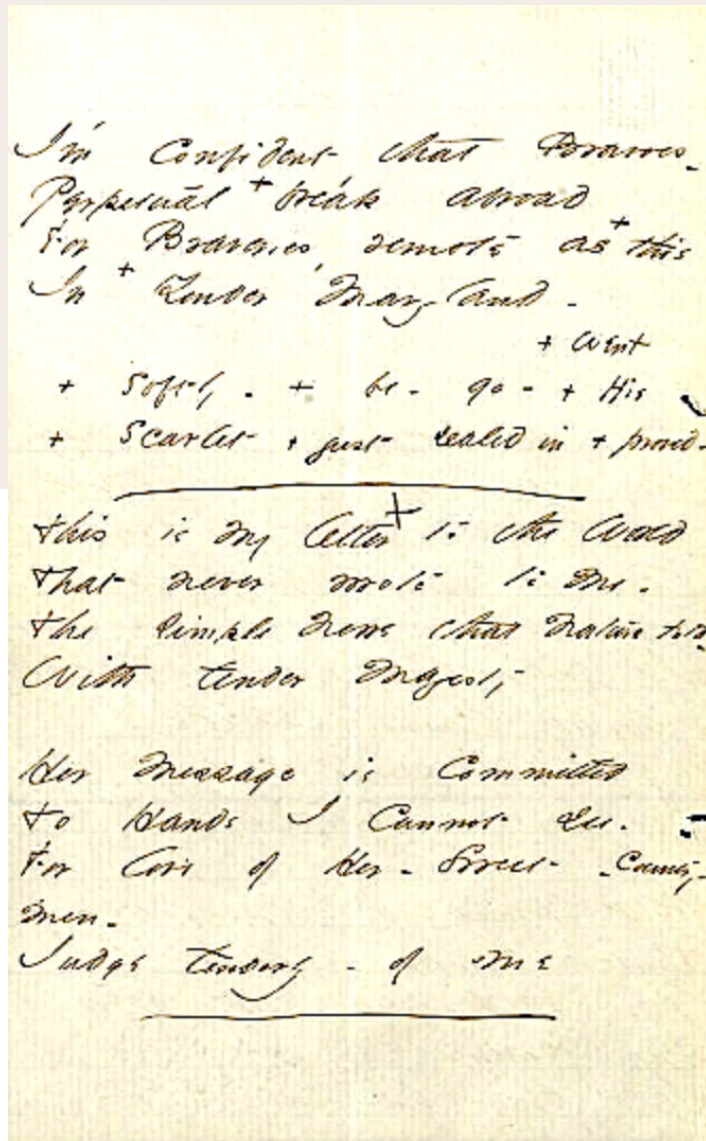 I'm confident that Bravoes -
Perpetual + break abroad
For Braveries, remote as + this
In + Yonder Maryland -
+ went
+ Softly - + be - go - + His
+ Scarlet + just sealed in + proud -
This is my letter + to the World
That never wrote to Me -
The simple News that Nature told -
With tender Majesty
Her Message is Committed
To Hands I cannot see -
For love of Her - Sweet - Country-
men -
Judge tenderly - of Me